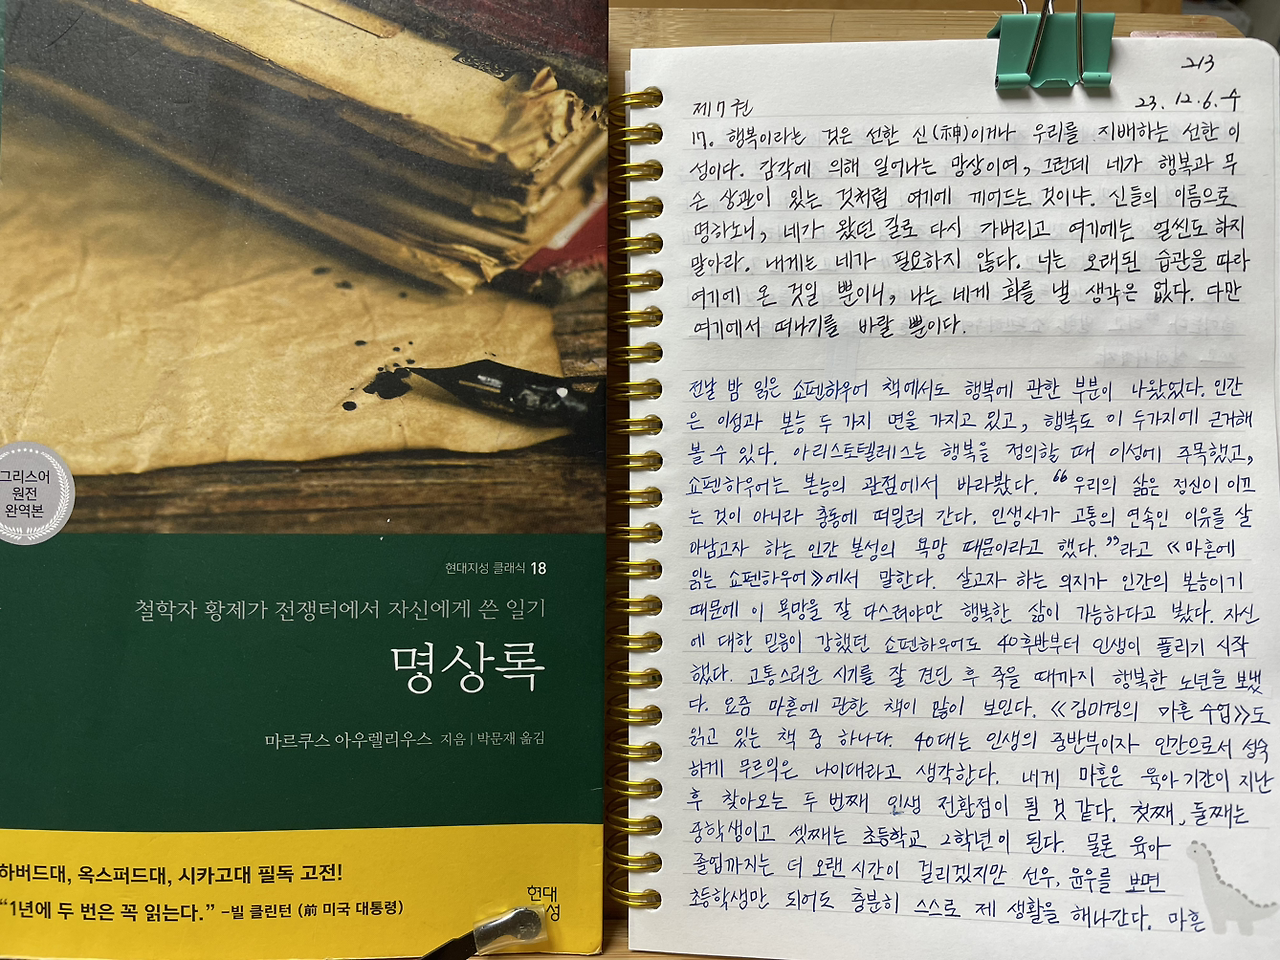 그리스어
원전
완역본
현대지성 클래식 18
철학자 황제가 전쟁터에서 자신에게 쓴 일기
명상록
마르쿠스 아우렐리우스 지음 | 박문재 옮김
하버드대, 옥스퍼드대, 시카고대 필독 고전!
“1년에 두 번은 꼭 읽는다.” –빌 클린턴 (前 미국 대통령)
현대
성
213
제7권 23. 12. 6. 수
17. 행복이라는 것은 선한 신(神)이거나 우리를 지배하는 선한 이
성이다. 감각에 의해 일어나는 망상이여, 그런데 네가 행복과 무
슨 상관이 있는 것처럼 여기에 끼어드는 것이냐. 신들의 이름으로
명하노니, 네가 왔던 길로 다시 가버리고 여기에는 얼씬도 하지
말아라. 내게는 네가 필요하지 않다. 너는 오래된 습관을 따라
여기에 온 것일 뿐이니, 나는 네게 화를 낼 생각은 없다. 다만
여기에서 떠나기를 바랄 뿐이다.
전날 밤 읽은 쇼펜하우어 책에서도 행복에 관한 부분이 나왔었다. 인간
은 이성과 본능 두 가지 면을 가지고 있고, 행복도 이 두가지에 근거해
볼 수 있다. 아리스토텔레스는 행복을 정의할 때 이성에 주목했고,
쇼펜하우어는 본능의 관점에서 바라봤다. “우리의 삶은 정신이 이끄
는 것이 아니라 충동에 떠밀려 간다. 인생사가 고통의 연속인 이유를 살
아남고자 하는 인간 본성의 욕망 때문이라고 했다.”라고 《마흔에
읽는 쇼펜하우어》에서 말한다. 살고자 하는 의지가 인간의 본능이기
때문에 이 욕망을 잘 다스려야만 행복한 삶이 가능하다고 봤다. 자신
에 대한 믿음이 강했던 쇼펜하우어도 40후반부터 인생이 풀리기 시작
했다. 고통스러운 시기를 잘 견딘 후 죽을 때까지 행복한 노년을 보냈
다. 요즘 마흔에 관한 책이 많이 보인다. 《김미경의 마흔 수업》도
읽고 있는 책 중 하나다. 40대는 인생의 중반부이자 인간으로서 성숙
하게 무르익은 나이대라고 생각한다. 내게 마흔은 육아기간이 지난
후 찾아오는 두 번째 인생 전환점이 될 것 같다. 첫째, 둘째는
중학생이고 셋째는 초등학교 2학년이 된다. 물론 육아
졸업까지는 더 오랜 시간이 걸리겠지만 선우, 윤우를 보면
초등학생만 되어도 충분히 스스로 제 생활을 해나간다. 마흔